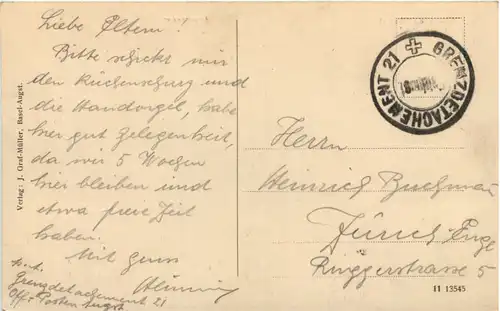 Liebe Eltern!
Bitte schickt mir
den Küchenschurz und
die Handorgel, habe
hier gut Gelegenheit,
da wir 5 Wochen
hier bleiben und
etwa freie Zeit
haben.
Mit Gruss
Grenzdetachement 21
Off. Posten Augst
Verlag: J. Graf-Müller, Basel-Augst.
GRENZDETACHEMENT 21
Herrn
Heinrich
Zürich Enge
Rüggerstrasse 5
11 13545